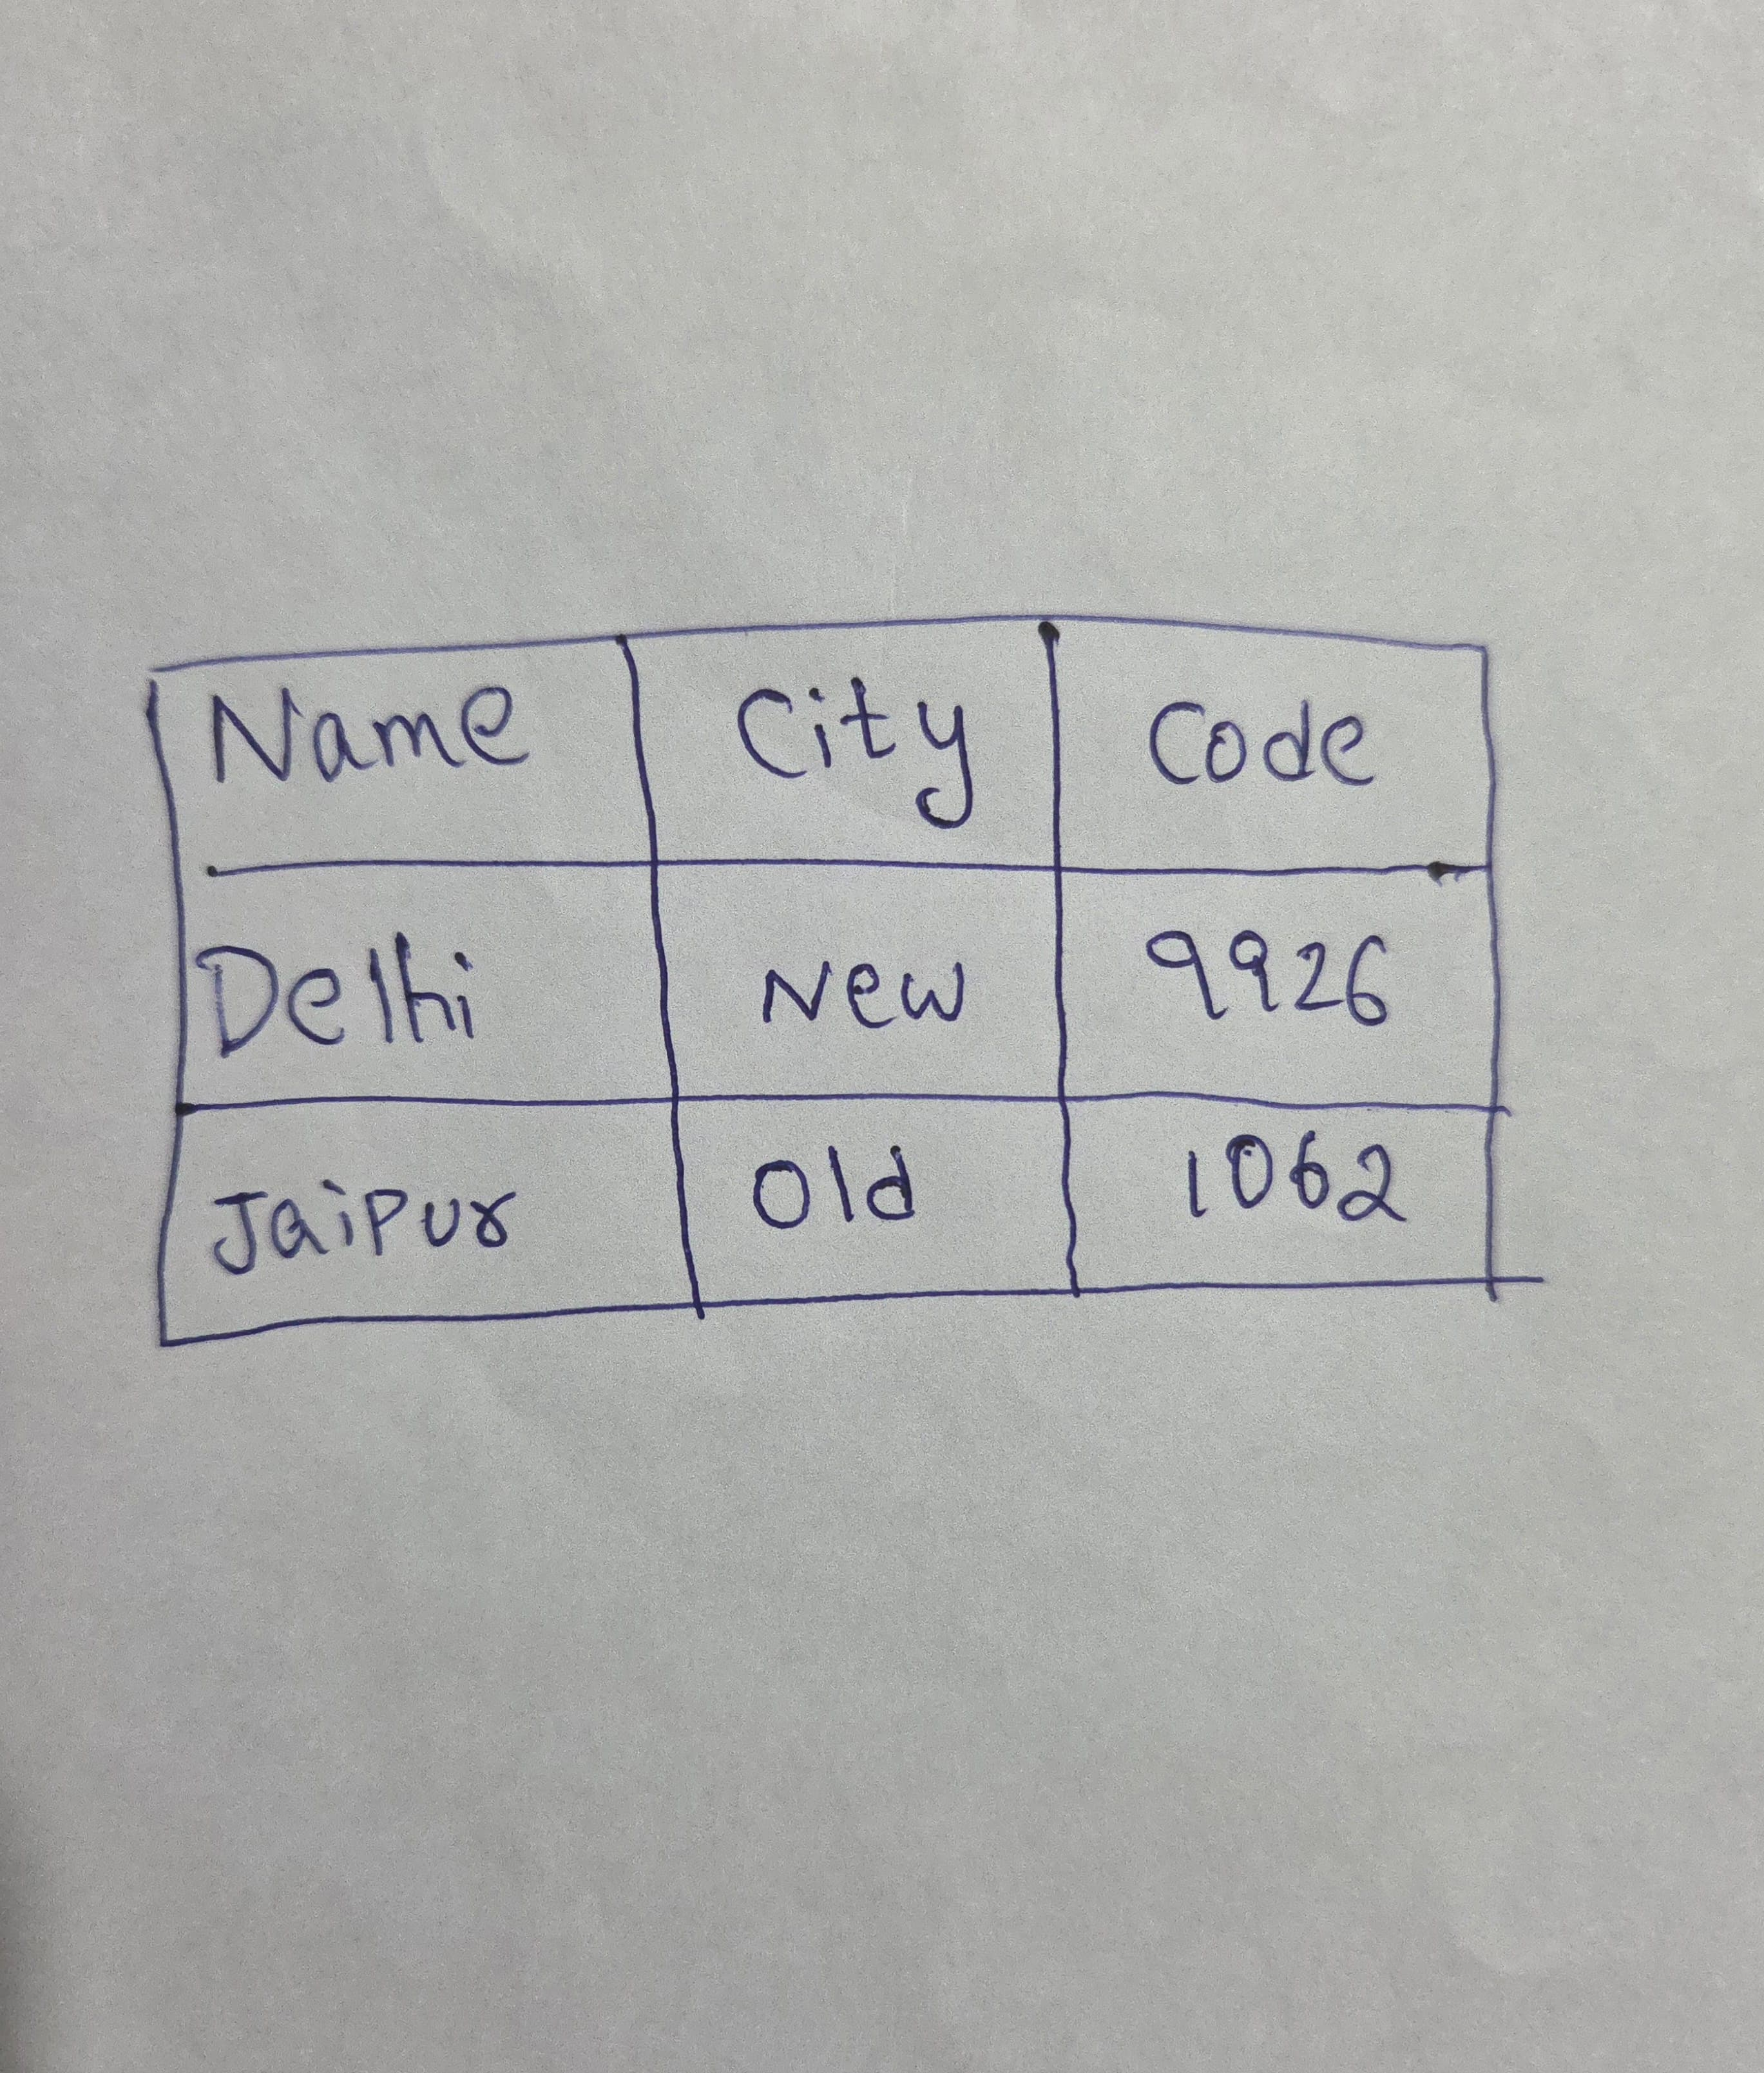 Name City Code
Delhi New 9926
Jaipur Old 1062